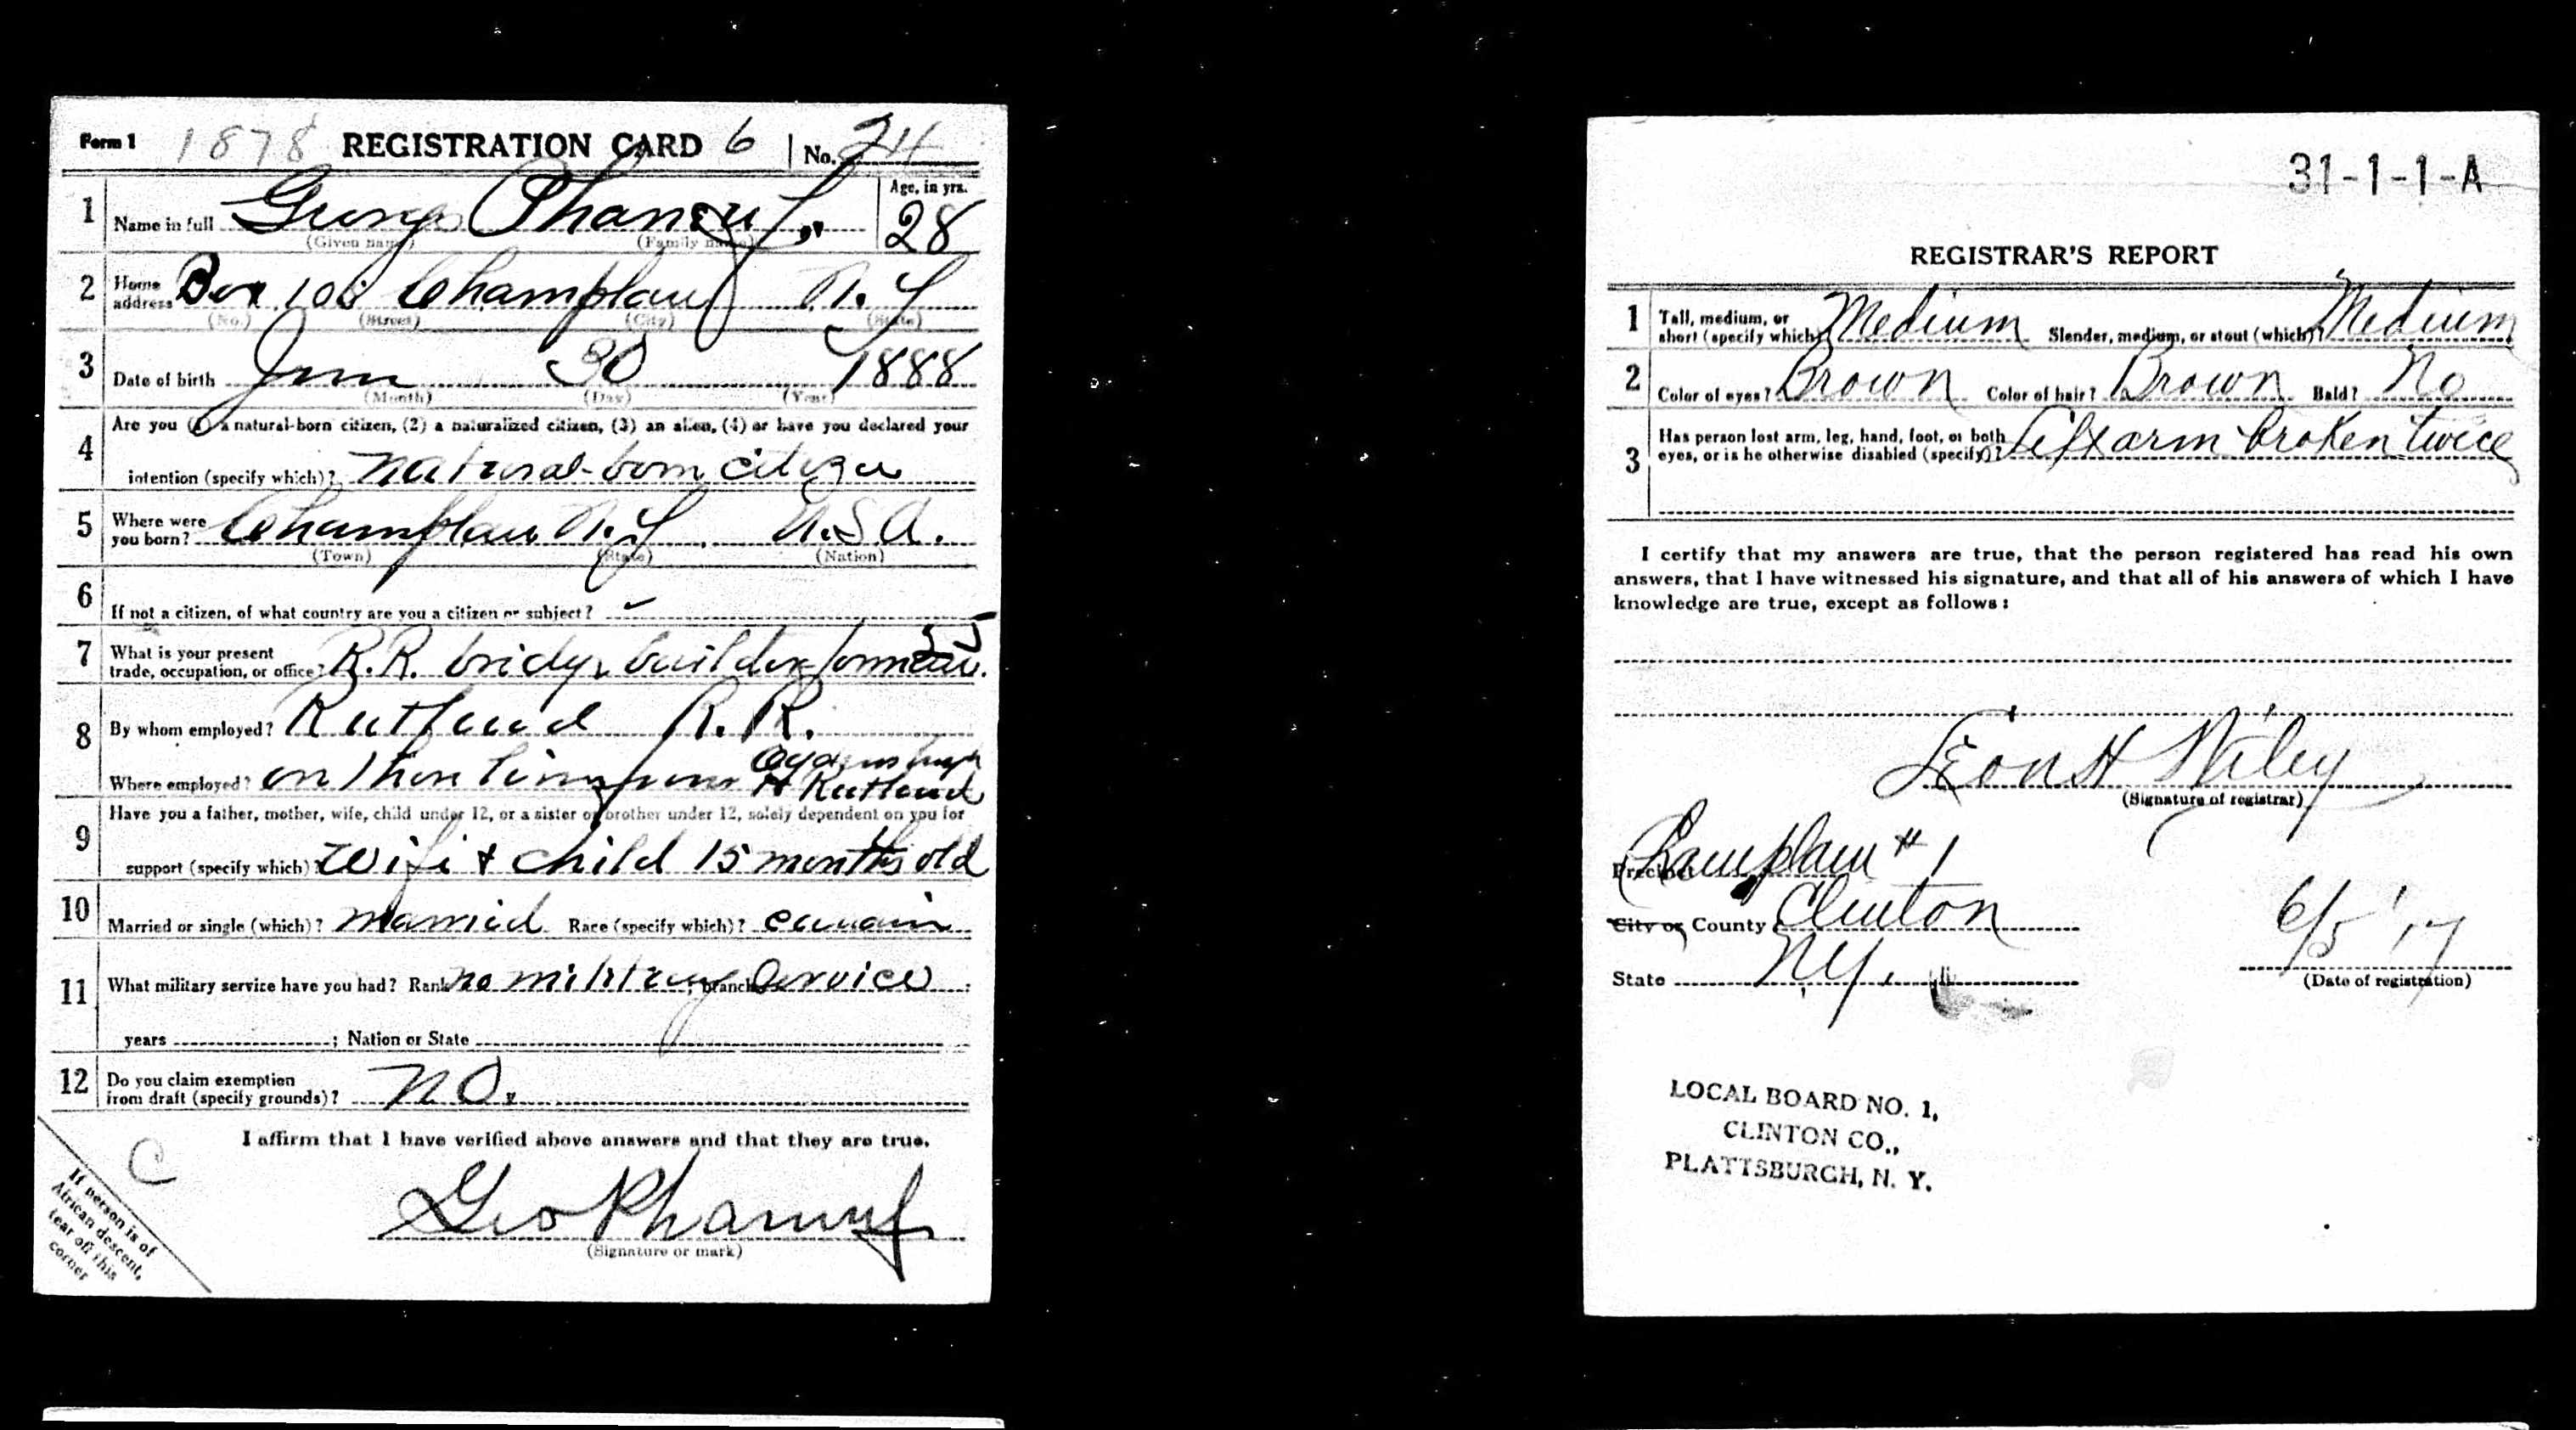 Form 1 1878 REGISTRATION CARD 6 No. 24
1 Name in full George Phaneuf Age, in yrs. 28
(Given name) (Family name)
2 Home address Box 106 Champlain N.Y
(No.) (Street) (City) (State)
3 Date of birth 30 1888
(Month) (Day) (Year)
4 Are you (1) a natural-born citizen, (2) a naturalized citizen, (3) an alien, (4) or have you declared your
intention (specify which)? Natural-born citizen
5 Where were you born? Champlain N.Y. U.S.A.
(Town) (State) (Nation)
6 If not a citizen, of what country are you a citizen or subject?
7 What is your present trade, occupation, or office? R.R. bridge builder foreman. 35
8 By whom employed? Rutland R.R.
Where employed? on from Ogdensburgh
to Rutland
9 Have you a father, mother, wife, child under 12, or a sister or brother under 12, solely dependent on you for
support (specify which)? Wife + child 15 months old
10 Married or single (which)? married Race (specify which)?
11 What military service have you had? Rank no military; branch Service;
years ; Nation or State
12 Do you claim exemption from draft (specify grounds)? No.
I affirm that I have verified above answers and that they are true.
C
Geo Phaneuf
(Signature or mark)
If person is of
African descent,
tear off this
corner
31-1-1-A
REGISTRAR'S REPORT
1 Tall, medium, or short (specify which)? Medium Slender, medium, or stout (which)? Medium
2 Color of eyes? Brown Color of hair? Brown Bald? No
3 Has person lost arm, leg, hand, foot, or both eyes, or is he otherwise disabled (specify)? Left arm broken twice
I certify that my answers are true, that the person registered has read his own
answers, that I have witnessed his signature, and that all of his answers of which I have
knowledge are true, except as follows:
Leon H Wiley
(Signature of registrar)
Precinct Champlain #1
City or County Clinton
State N.Y. 6/5 '17
(Date of registration)
LOCAL BOARD NO. 1,
CLINTON CO.,
PLATTSBURGH, N. Y.